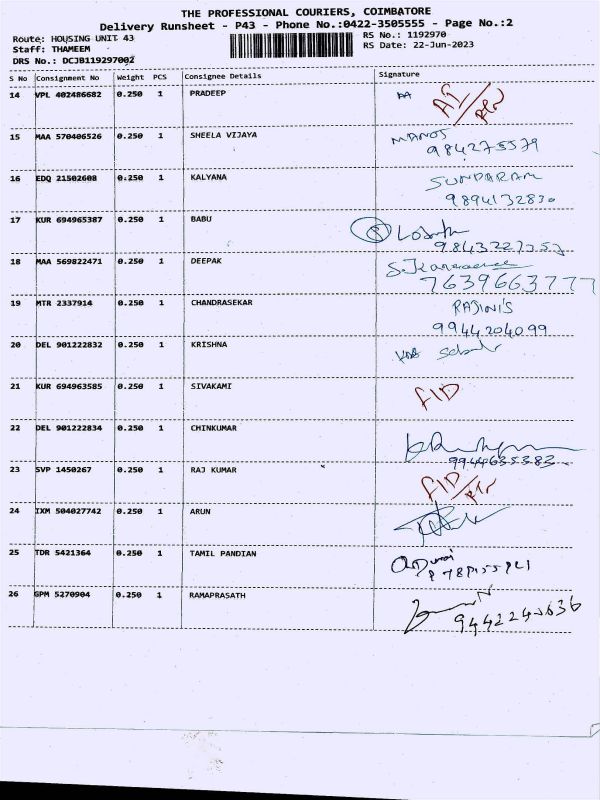 THE PROFESSIONAL COURIERS, COIMBATORE
Delivery Runsheet - P43 - Phone No.:0422-3505555 - Page No.:2
Route: HOUSING UNIT 43
Staff: THAMEEM
DRS No.: DCJB119297002
RS No.: 1192970
RS Date: 22-Jun-2023
S No Consignment No Weight PCS Consignee Details Signature
14 VPL 402486682 0.250 1 PRADEEP
15 MAA 570406526 0.250 1 SHEELA VIJAYA MANOJ
9842755579
16 EDQ 21502608 0.250 1 KALYANA SUNDARAM
9894132830
17 KUR 694965387 0.250 1 BABU
18 MAA 569822471 0.250 1 DEEPAK
7639663777
19 MTR 2337914 0.250 1 CHANDRASEKAR RAJINI'S
9944204099
20 DEL 901222832 0.250 1 KRISHNA
21 KUR 694963585 0.250 1 SIVAKAMI FID
22 DEL 901222834 0.250 1 CHINKUMAR
9944635383
23 SVP 1450267 0.250 1 RAJ KUMAR FID
24 IXM 504027742 0.250 1 ARUN
25 TDR 5421364 0.250 1 TAMIL PANDIAN
26 GPM 5270904 0.250 1 RAMAPRASATH